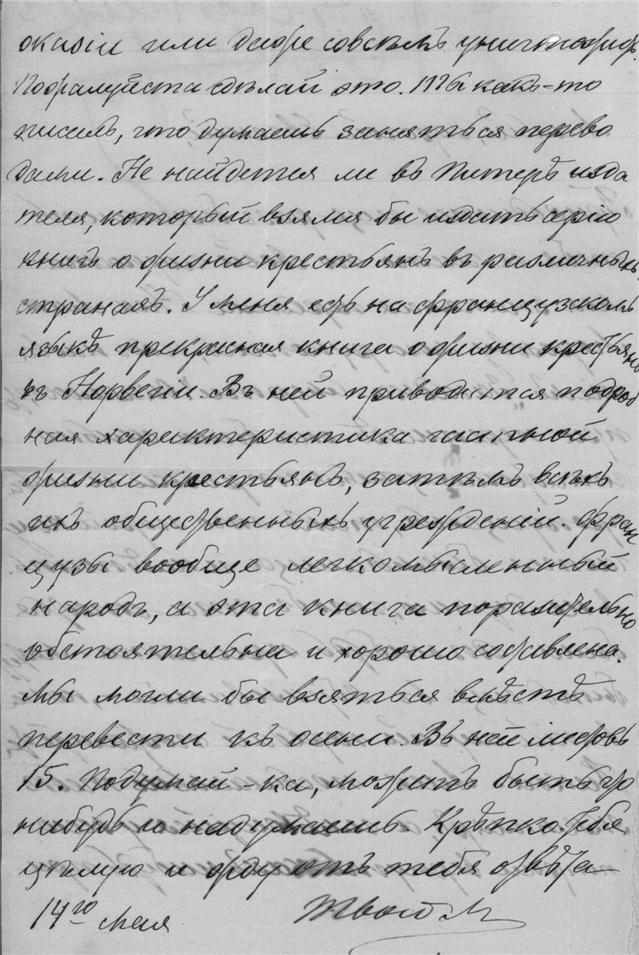 оказіи или даже совсѣмъ уничтожь.
Пожалуйста сдѣлай это. Ты какъ-то
писалъ, что думаешь заняться перево
дами. Не найдется ли въ Питерѣ изда
теля, который взялся бы издать серію
книгъ о жизни крестьянъ въ различныхъ
странахъ. У меня есть на французскомъ
языкѣ прекрасная книга о жизни крестьянъ
въ Норвегіи. Въ ней приводится подроб
ная характеристика частной
жизни крестьянъ, затѣмъ всѣхъ
ихъ общественныхъ учрежденій. Фран
цузы вообще легкомысленный
народъ, а эта книга поразительно
обстоятельна и хорошо составлена.
Мы могли бы взяться вмѣстѣ
перевести къ осени. Въ ней листовъ
15. Подумай-ка, можетъ быть что
нибудь и надумаешь. Крѣпко тебя
цѣлую и жду отъ тебя отвѣта
14го мая Твой М